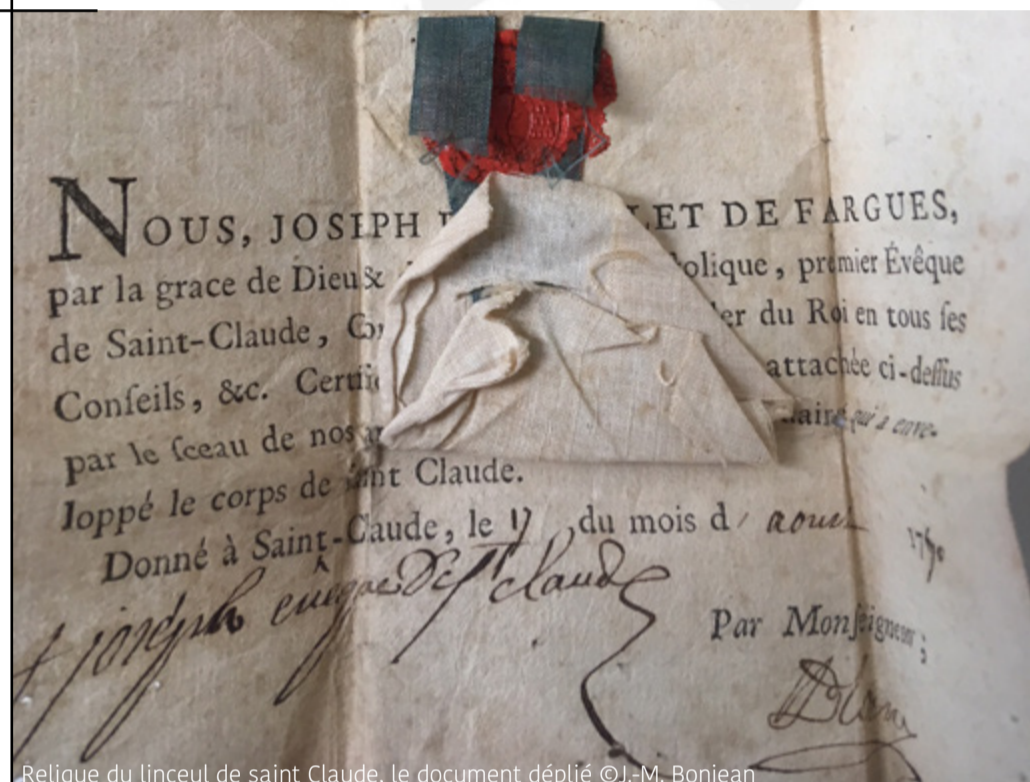 NOUS, JOSEPH LET DE FARGUES,
par la grace de Dieu & olique, premier Évêque
de Saint-Claude, Co er du Roi en tous ſes
Conſeils, &c. Certifi attachée ci-deſſus
par le ſceau de nos aire qui a enve-
loppé le corps de ſaint Claude.
Donné à Saint-Claude, le 17 du mois d'aoust 17
† joseph eveque de St claude
Par Monſeigneur;
Relique du linceul de saint Claude, le document déplié ©J.-M. Bonjean